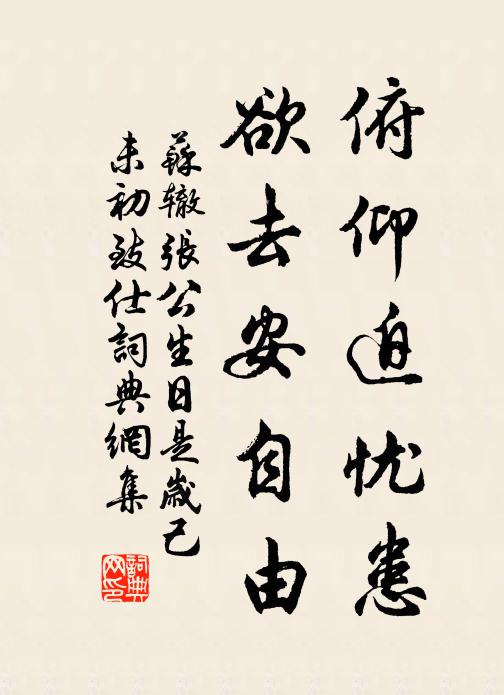 俯仰迫忧患
欲去安自由
蘇辙張公生日是歲己
未初致仕詞典網集
詞典
网印